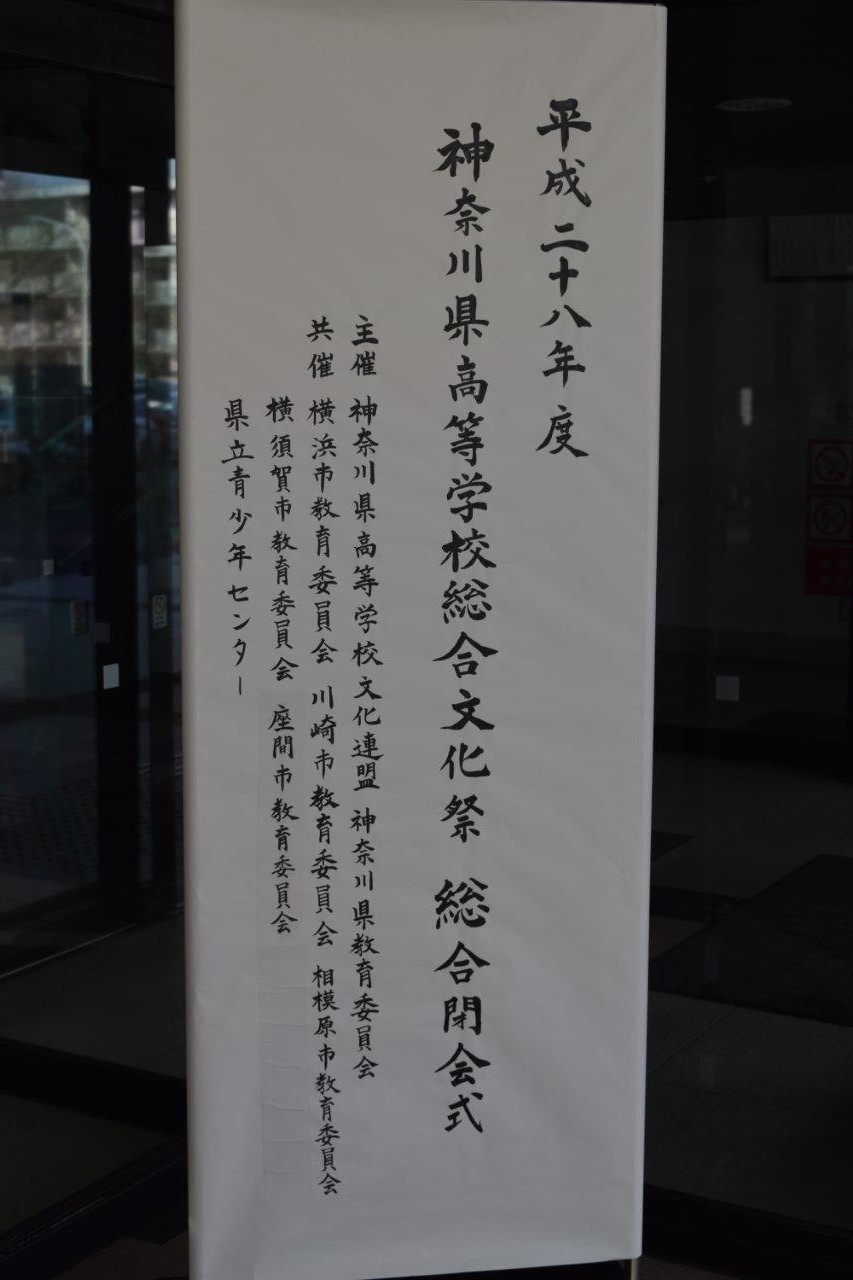 平成二十八年度
神奈川県高等学校総合文化祭 総合閉会式
主催 神奈川県高等学校文化連盟 神奈川県教育委員会
共催 横浜市教育委員会 川崎市教育委員会 相模原市教育委員会
横須賀市教育委員会 座間市教育委員会
県立青少年センター